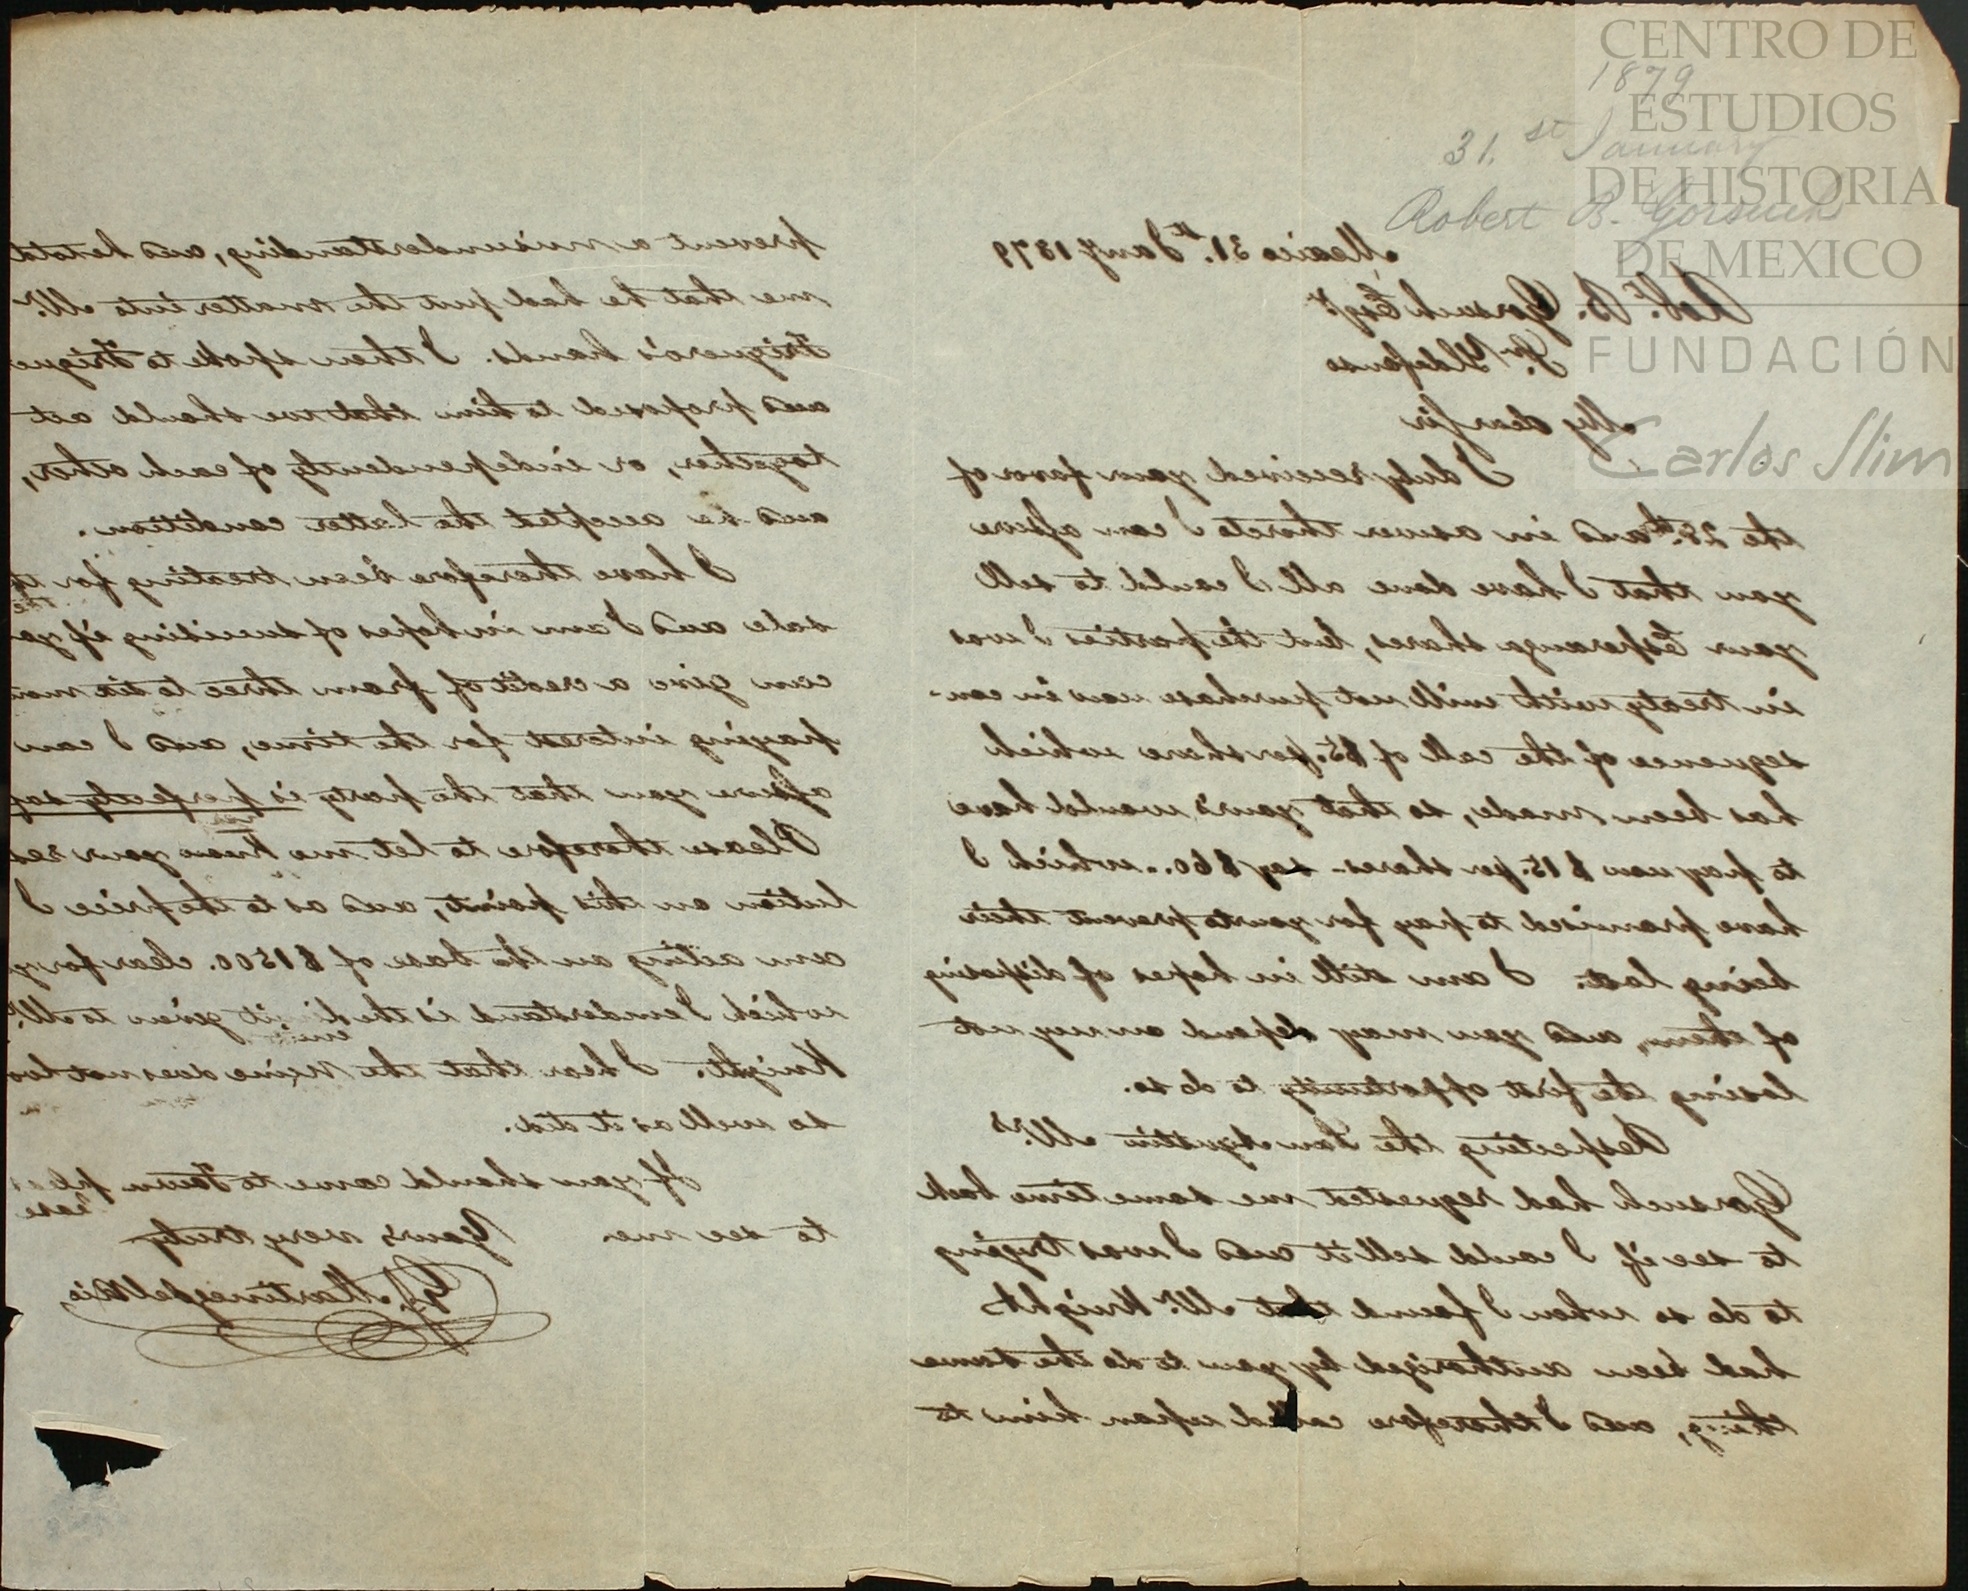 1879
31.st January
Robert B. Gorsuch
CENTRO DE
ESTUDIOS
DE HISTORIA
DE MEXICO
FUNDACIÓN
Carlos Slim
Mexico 31.st Jany 1879
Robt. B. Gorsuch Esqr.
Sn. Yldefonso
My dear Sir
I duly received your favor of
the 28th. and in answer thereto I can assure
you that I have done all I could to sell
your Esperanza shares, but the parties I was
in treaty with will not purchase now in con-
sequence of the call of $5. per share which
has been made, so that yours would have
to pay now $15. per share - say $60.- which I
have promised to pay for you to prevent their
being lost. I am still in hopes of disposing
of them, and you may depend on my not
losing the first opportunity to do so.
Respecting the San Agustin Mrs.
Gorsuch had requested me some time back
to see if I could sell it and I was trying
to do so when I found that Mr. Knight
had been authorized by you to do the same
thing, and I therefore called upon him to
prevent a misunderstanding, and he told
me that he had put the matter into Mr.
Trigueros's hands. I then spoke to Trigue
and proposed to him that we should act
together, or independently of each other,
and he accepted the latter condition.
I have therefore been treating for the
sale and I am in hopes of succeeding if you
can give a credit of from three to six mon
paying interest for the time, and I can
assure you that the party is perfectly saf
Please therefore to let me know your res
lution on this point, and as to the price I
am acting on the base of $1500. clear for y
which I understand is the limit given to Mr.
Knight. I hear that the mine does not loo
so well as it did.
If you should come to Town please
to see me. Yours very truly
G. Martinez del Rio